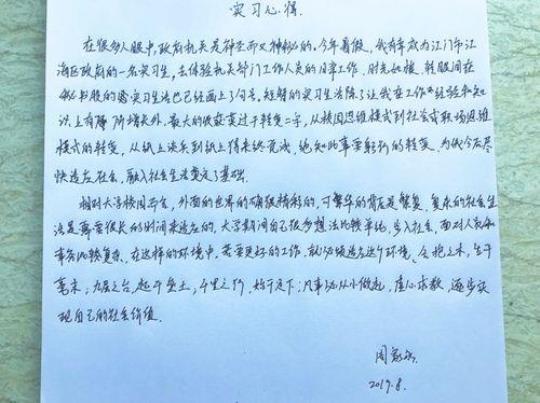 实习心得.
在很多人眼中,政府机关是神圣而又神秘的。今年暑假,我有幸成为江门市江
海区政府的一名实习生,去体验机关部门工作人员的日常工作。时光如梭,转眼间在
秘书股的实习生活已经画上了句号。短暂的实习生活除了让我在工作经验和知
识上有所增长外,最大的收获莫过于转变二字,从校园思维模式到社会或职场思维
模式的转变,从纸上谈兵到纸上得来终觉浅,绝知此事要躬行的转变。为我今后尽
快适应社会,融入社会生活奠定了基础.
相对大学校园而言,外面的世界的确很精彩的,可繁华的背后是繁复,复杂的社会生
活是需要很长的时间来适应的。大学期间自己很多想法比较单纯,步入社会,面对人和
事都比较复杂,在这样的环境中,若要更好的工作,就必须适应这个环境、合抱之木,生于
毫末;九层之台,起于垒土;千里之行,始于足下;凡事必从小做起,虚心求教,逐步实
现自己的社会价值.
2019.8.